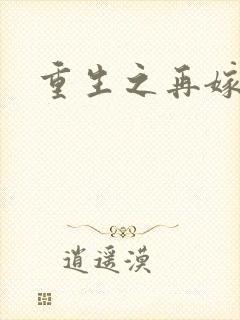 重生之再嫁
逍遥漠